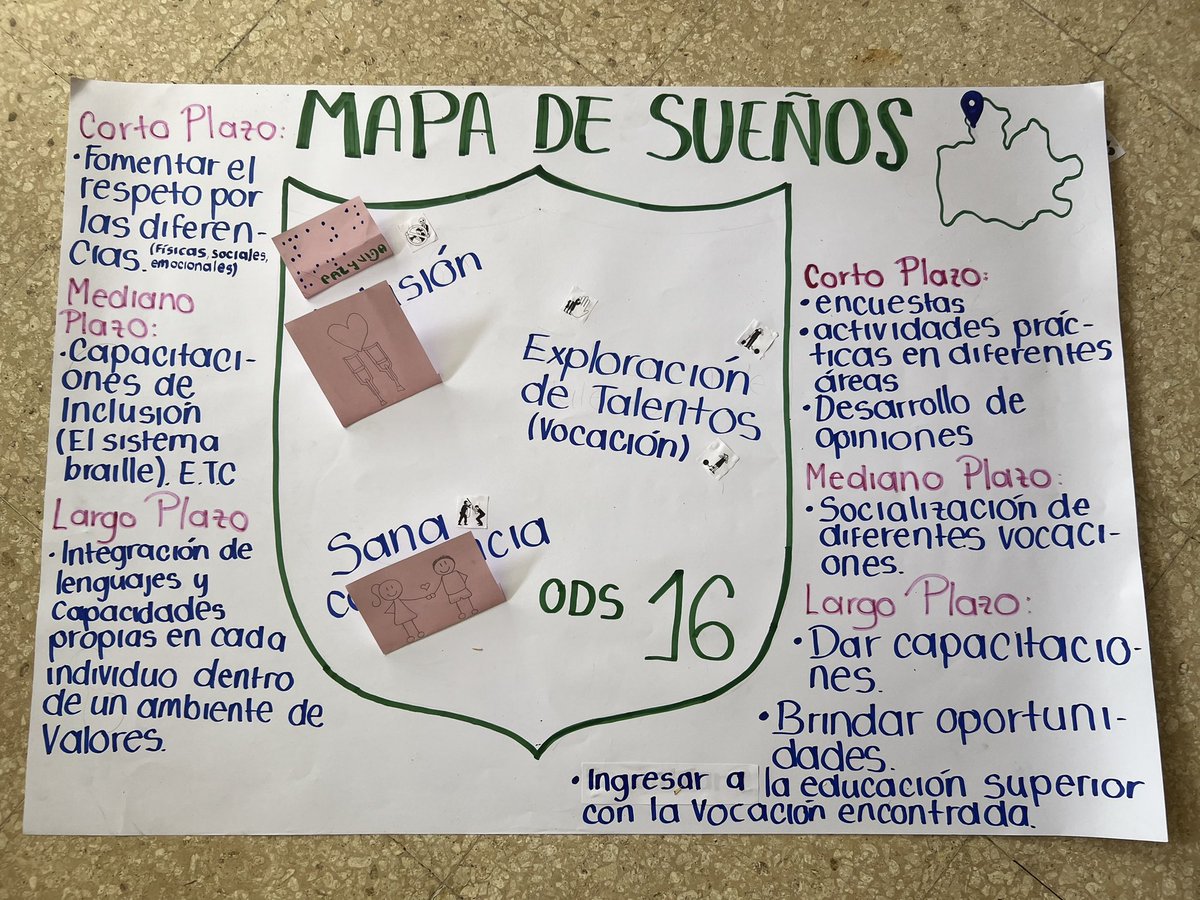 MAPA DE SUEÑOS
Corto Plazo:
•Fomentar el
respeto por
las diferen-
cias. (Físicas, sociales,
emocionales)
Mediano
Plazo:
•Capacitaci-
ones de
Inclusión
(El sistema
braille). E.T.C
Largo Plazo
•Integración de
lenguajes y
capacidades
propias en cada
individuo dentro
de un ambiente de
Valores.
PAZ y VIDA
usión
Exploración
de Talentos
(Vocación)
Sana ncia
co
ODS 16
Corto Plazo:
•encuestas
•actividades prác-
ticas en diferentes
áreas
•Desarrollo de
opiniones
Mediano Plazo:
•Socialización de
diferentes vocaci-
ones.
Largo Plazo:
•Dar capacitacio-
nes.
•Brindar oportuni-
dades.
•Ingresar a la educación superior
con la Vocación encontrada.